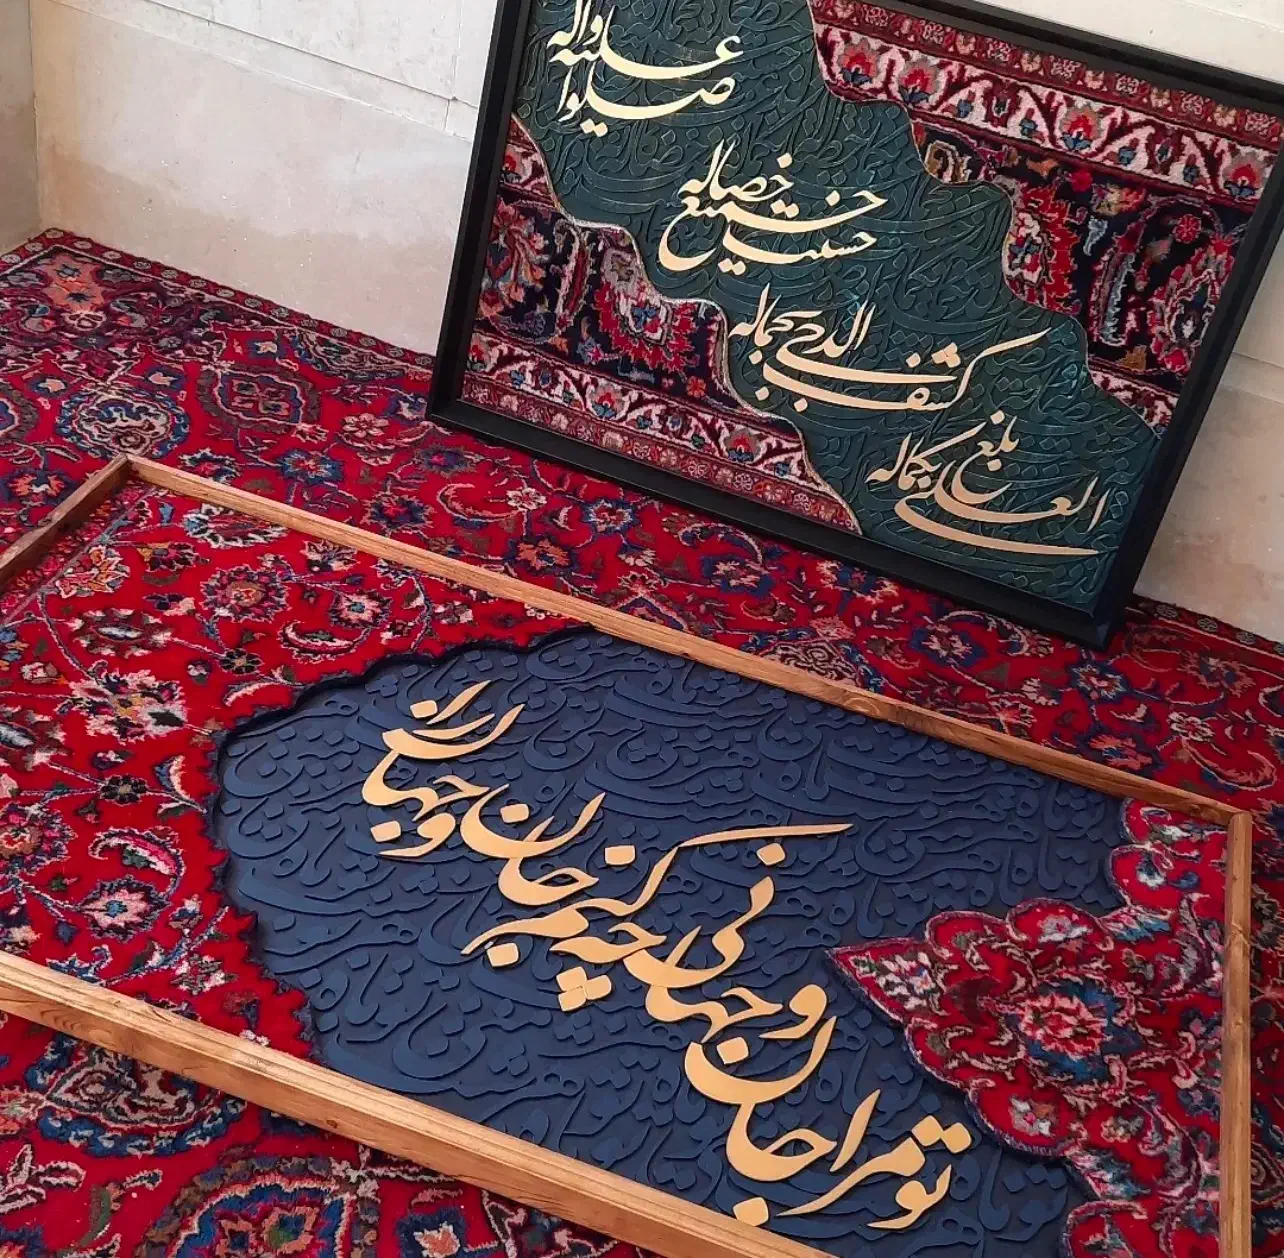 بلغ العلی بکماله
کشف الدجی بجماله
حسنت جمیع خصاله
صلوا علیه واله
تو مرا جان و جهانی چه کنم جان و جهان را